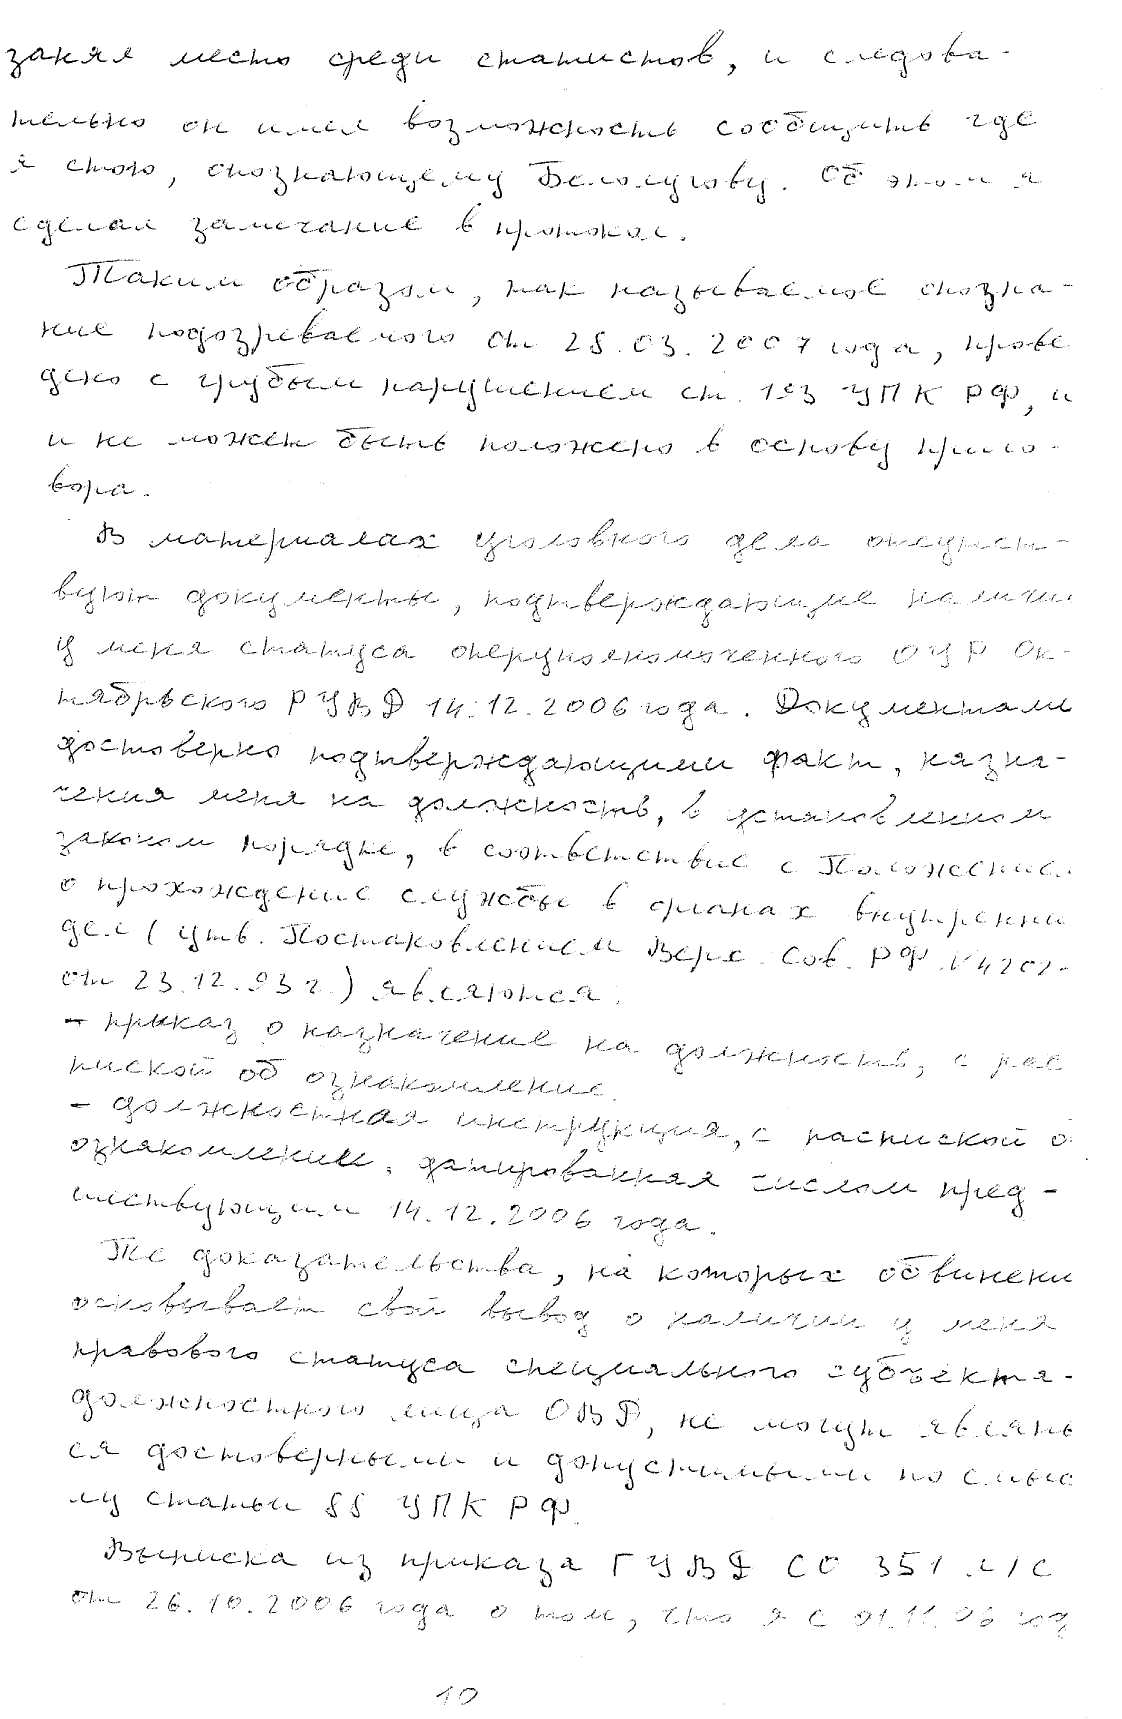 занял место среди статистов, и следова-
тельно он имел возможность сообщить где
я стою, опознающему Белоусову. Об этом я
сделал замечание в протокол.
Таким образом, так называемое опозна-
ние подозреваемого от 28.03.2007 года, прове
дено с грубым нарушением ст. 193 УПК РФ, и
и не может быть положено в основу приго-
вора.
В материалах уголовного дела отсутст-
вуют документы, подтверждающие наличи
у меня статуса оперуполномоченного ОУР Ок-
тябрьского РУВД 14.12.2006 года. Документами
достоверно подтверждающими факт, назна-
чения меня на должность, в установленном
законом порядке, в соответствие с Положение
о прохождение службы в органах внутренни
дел (утв. Постановлением Верх. Сов. РФ 4202-
от 23.12.93 г.) являются:
- приказ о назначение на должность, с рас
пиской об ознакомление.
- должностная инструкция, с распиской о
ознакомлении, датированная числом пред-
шествующим 14.12.2006 года.
Те доказательства, на которых обвинени
основывает свой вывод о наличии у меня
правового статуса специального субъекта-
должностного лица ОВД, не могут являть
ся достоверными и допустимыми по смыс
лу статьи 88 УПК РФ.
Выписка из приказа ГУВД СО 351 л/с
от 26.10.2006 года о том, что я с 01.11.06 год
10